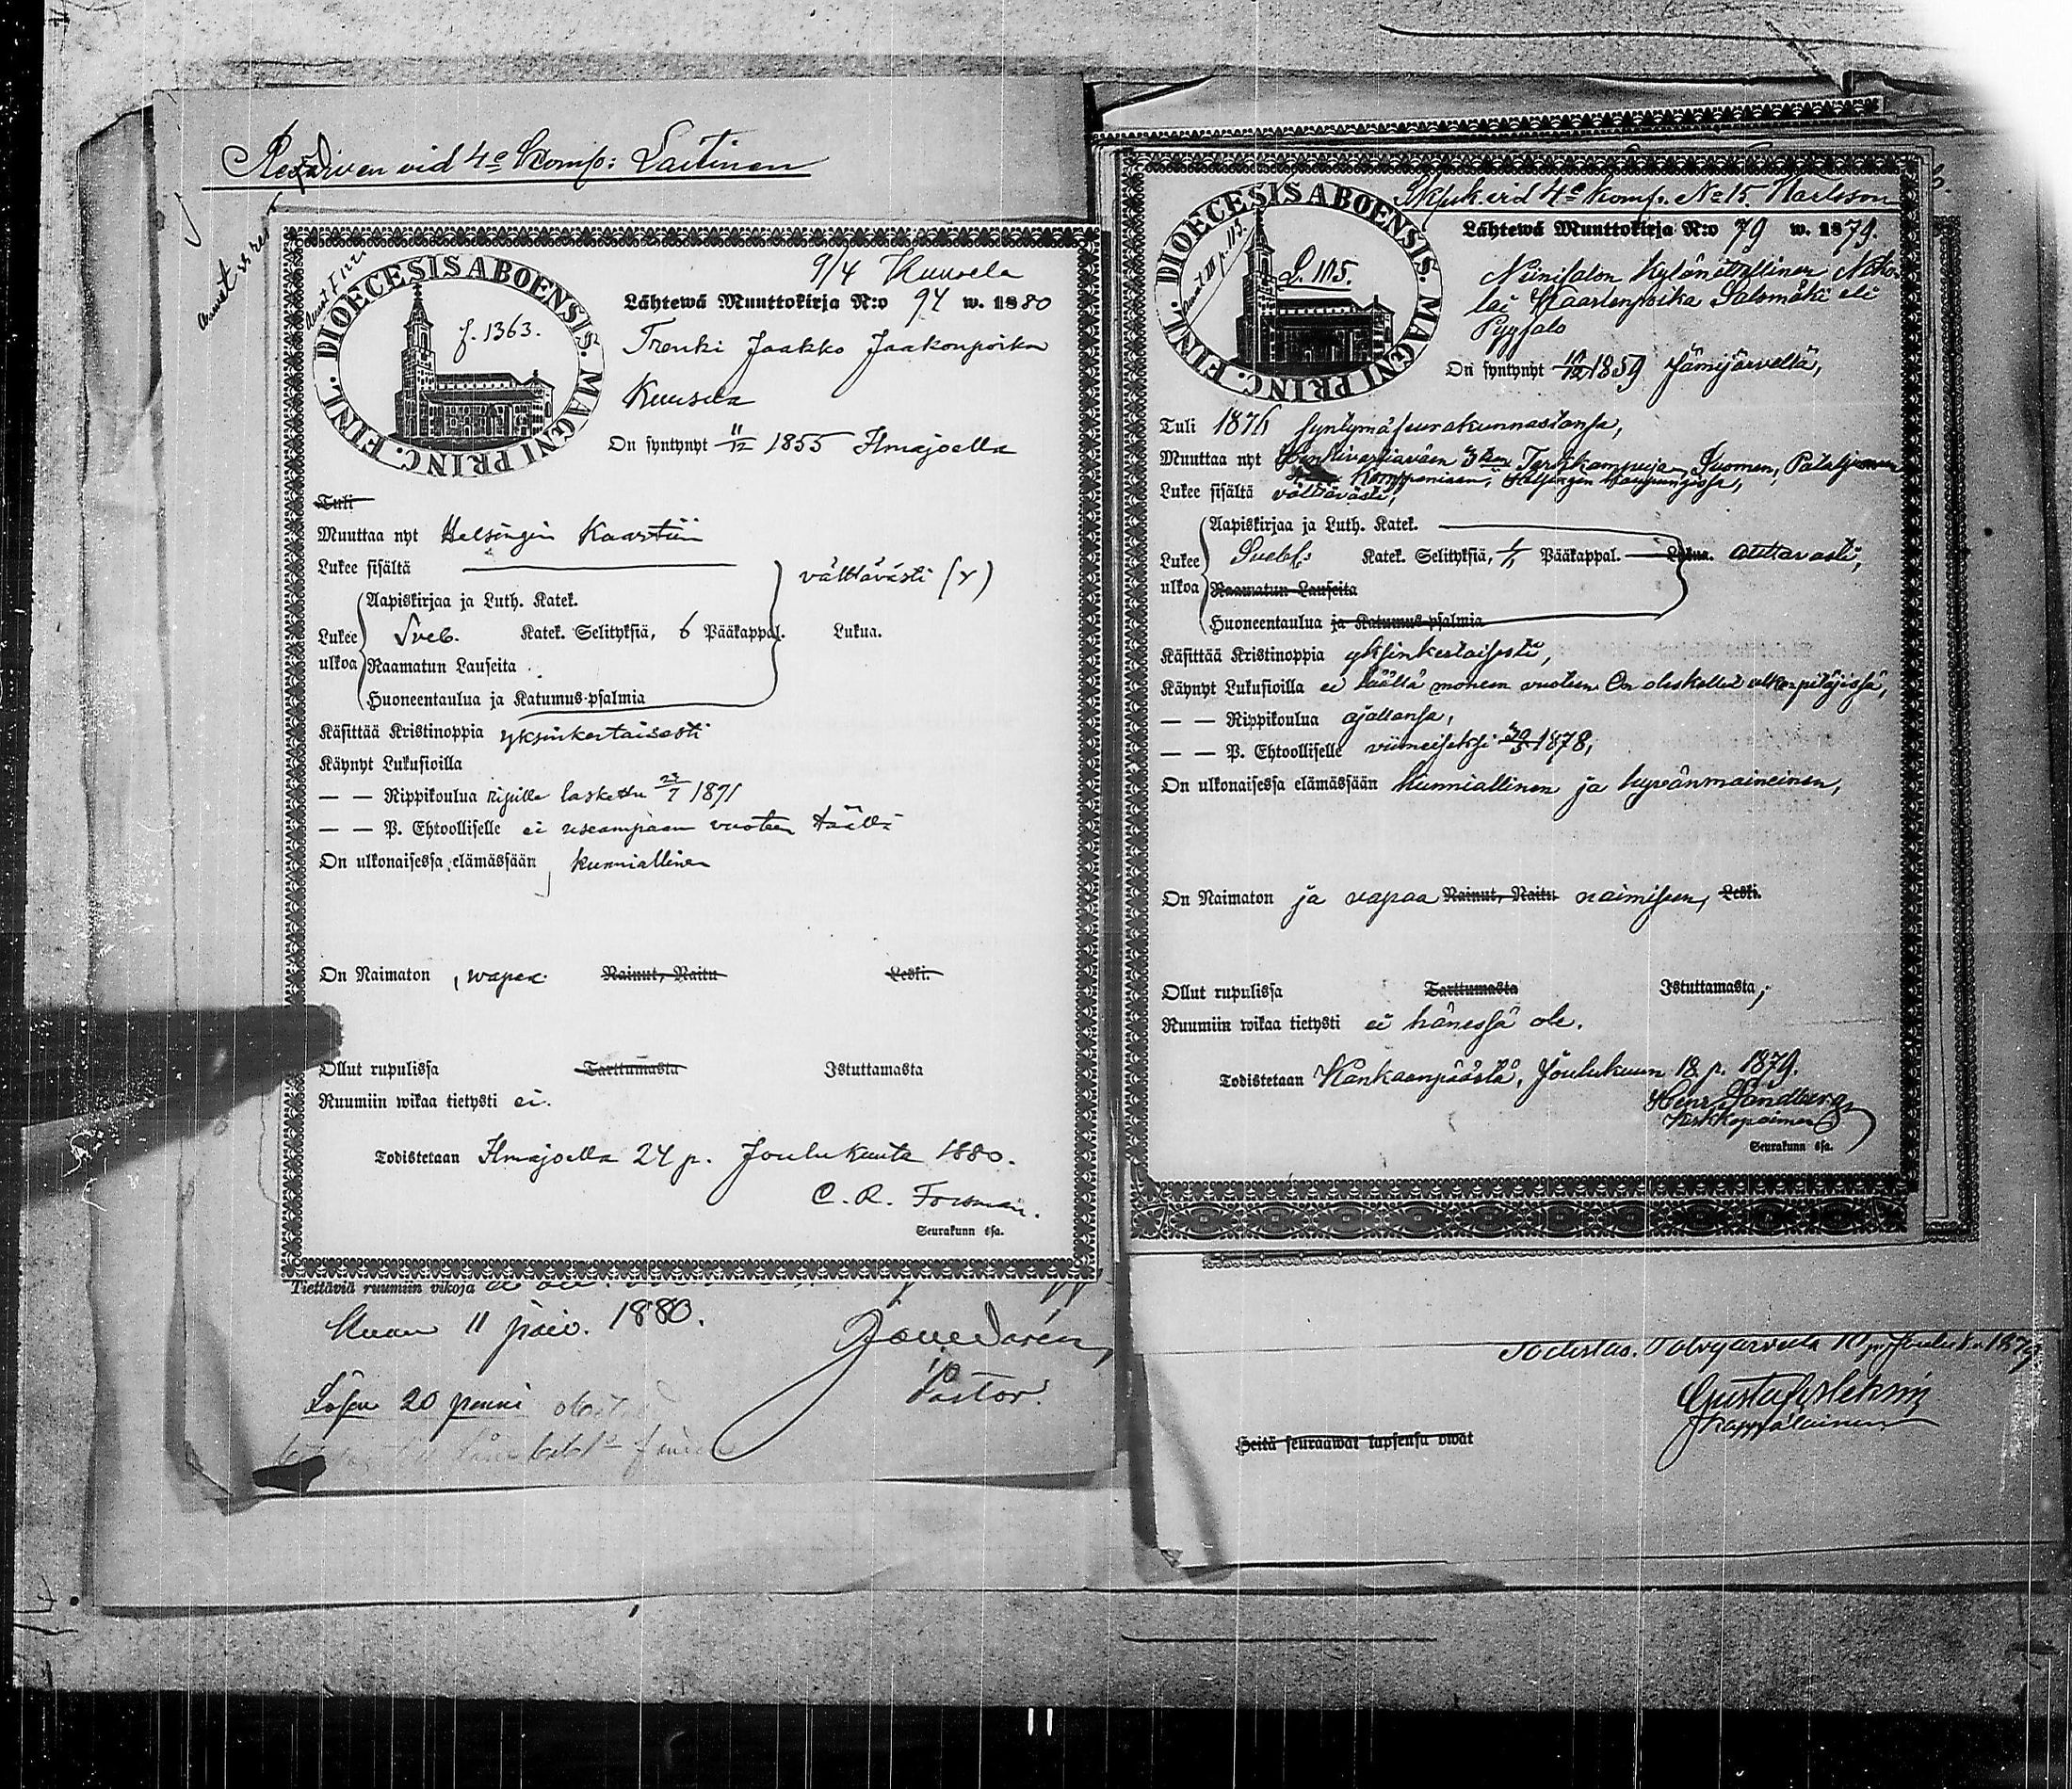 Reserven vid 4e Komp: Laitinen
DIOECESIS ABOENSIS. MAGNI PRINC. FINL.
f. 1363.
9/4 Kuusela
Lähtewä Muuttokirja N:o 94 w. 1880
Trenki Jaakko Jaakonpoika
Kuusela
On syntynyt 11/12 1855 Ilmajoella
Tuli
Muuttaa nyt Helsingin Kaartiin
Lukee sisältä
välttävästi (x)
Aapiskirjaa ja Luth. Katek.
Lukee ulkoa
Sveb. Katek. Selityksiä, 6 Pääkappal. Lukua.
Raamatun Lauseita
Huoneentaulua ja Katumus-psalmia
Käsittää Kristinoppia yksinkertaisesti
Käynyt Lukusioilla
— — Rippikoulua ripille laskettu 23/7 1871
— — P. Ehtoolliselle ei useampaan vuoteen täällä
On ulkonaisessa elämässään kunniallinen
On Naimaton, wapaa Nainut, Naitu Leski.
Ollut rupulissa Tarttumasta Istuttamasta
Ruumiin wikaa tietysti ei.
Todistetaan Ilmajoella 24 p. Joulukuuta 1880.
C. R. Forsman.
Seurakunn :sa.
Tiettäviä ruumiin vikoja
11 päiv. 1880.
Pastor.
20 penni
Skjuk. vid 4e Komp. No 15. Karlsson
DIOECESIS ABOENSIS. MAGNI PRINC. FINL.
S. 115.
Lähtewä Muuttokirja N:o 79 w. 1879.
Niinisalon Kylänätallinen Niko-
lai Kaarlenpoika Salomäki eli
Pyysalo
On syntynyt 10/12 1859 Jämijärvellä,
Tuli 1876 syntymäseurakunnastansa,
Muuttaa nyt Henkivartiaväen 3:en Tarkkampuja, Suomen, Pataljonan
Komppaniaan, Helsingin kaupungissa,
Lukee sisältä välttävästi,
Aapiskirjaa ja Luth. Katek.
Lukee ulkoa
Svebel: Katek. Selityksiä, 1/1 Pääkappal. Lukua. auttavasti,
Raamatun Lauseita
Huoneentaulua ja Katumus-psalmia
Käsittää Kristinoppia yksinkertaisesti,
Käynyt Lukusioilla ei täällä moneen vuoteen. On oleskellut ulkopitäjissä,
— — Rippikoulua ajallansa,
— — P. Ehtoolliselle viimeiseksi 30/5 1878,
On ulkonaisessa elämässään kunniallinen ja hyvänmaineinen,
On Naimaton ja vapaa Nainut, Naitu naimiseen, Leski.
Ollut rupulissa Tarttumasta Istuttamasta,
Ruumiin wikaa tietysti ei hänessä ole.
Todistetaan Kankaanpäästä, Joulukuun 18 p. 1879.
Henr. Sandberg
Kirkkopaimen
Seurakunn :sa.
Gustaf
Kappalainen
Heitä seuraawat lapsensa owat